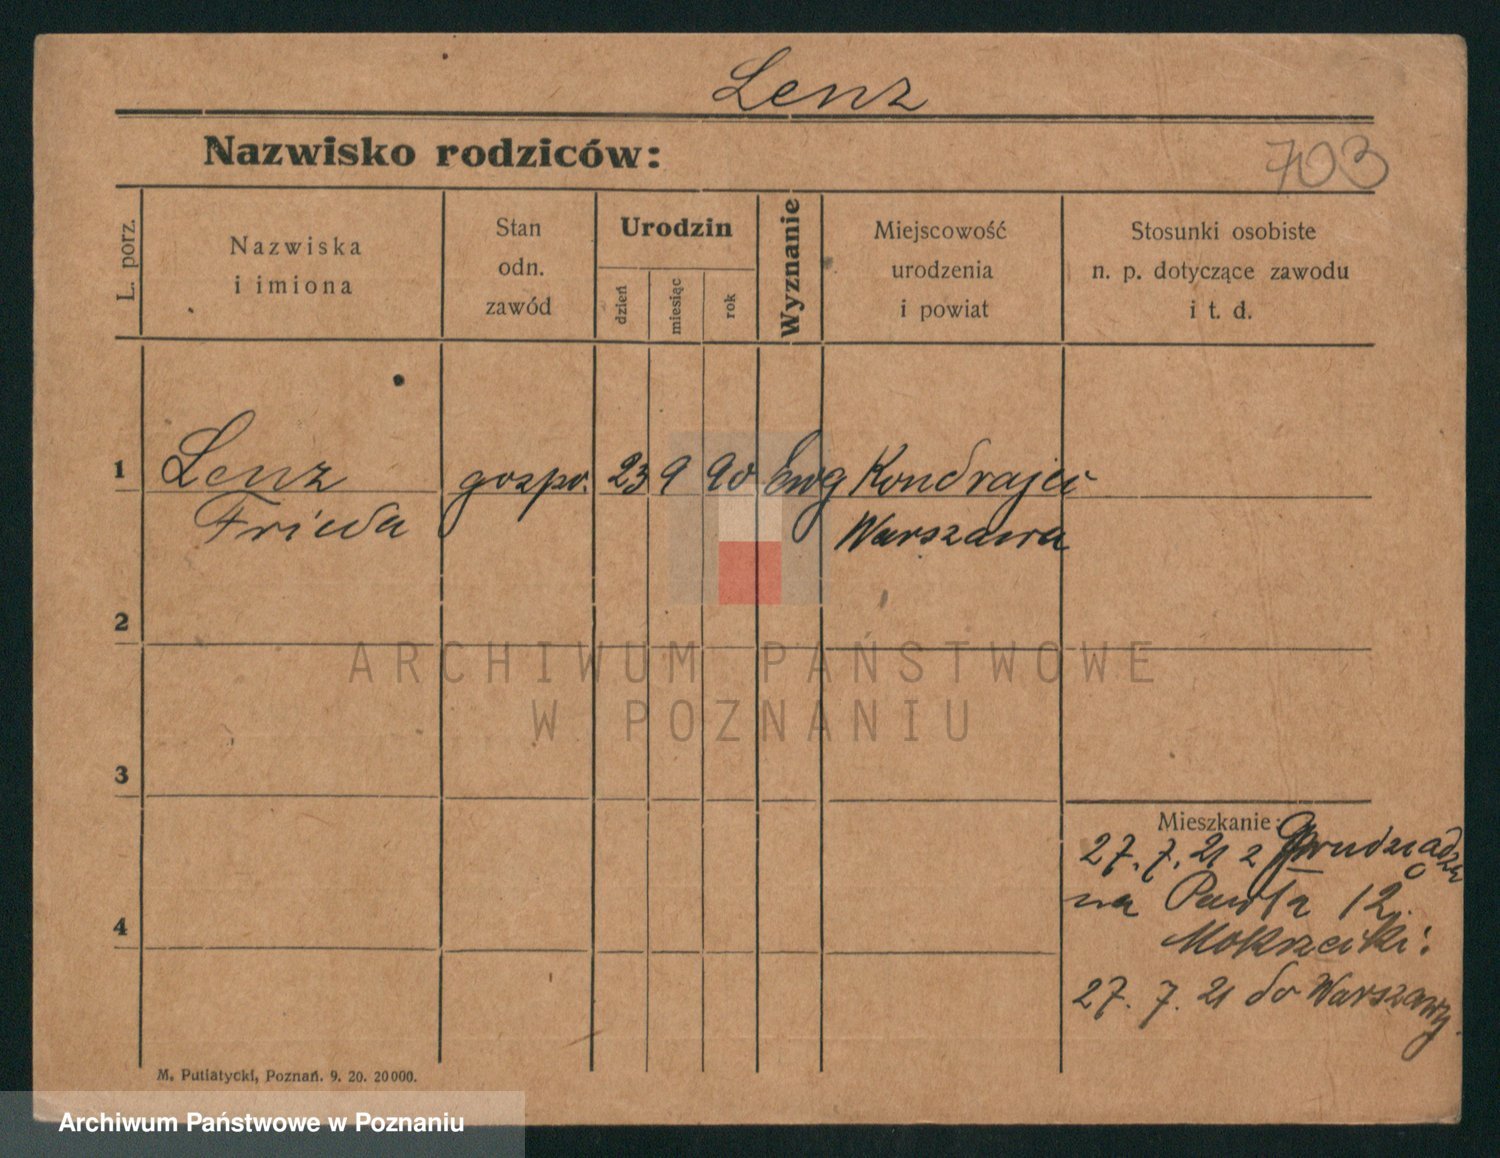 Lenz
Nazwisko rodziców:
703
L. porz.
Nazwiska
i imiona
Stan
odn.
zawód
Urodzin
dzień
miesiąc
rok
Wyznanie
Miejscowość
urodzenia
i powiat
Stosunki osobiste
n. p. dotyczące zawodu
i t. d.
1
Lenz gospo. 23 9 90 Ewg Kondrajec
Frieda Warszawa
2
ARCHIWUM PAŃSTWOWE
W POZNANIU
3
Mieszkanie:
27. 7. 21 z Grudziądza
na Pawła 12.
4
27. 7. 21 do Warszawy.
M. Putiatycki, Poznań. 9. 20. 20000.
Archiwum Państwowe w Poznaniu